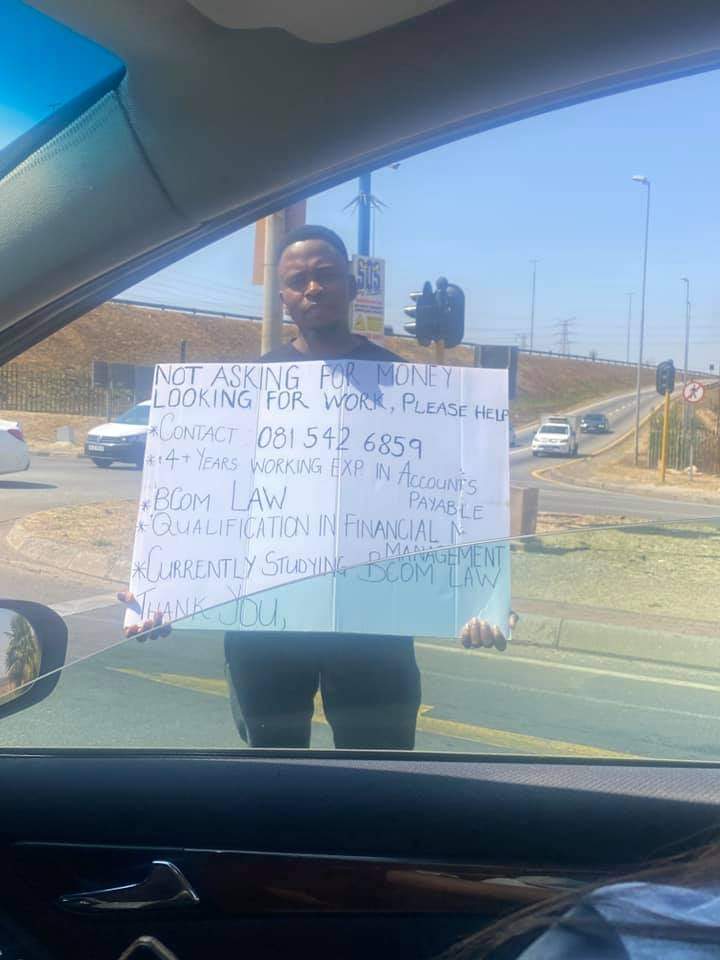 SOS
NOT ASKING FOR MONEY
LOOKING FOR WORK, PLEASE HELP
*CONTACT 081 542 6859
*4+ YEARS WORKING EXP. IN ACCOUNTS
PAYABLE
*BCOM LAW
*QUALIFICATION IN FINANCIAL
MANAGEMENT
*CURRENTLY STUDYING BCOM LAW
THANK YOU,